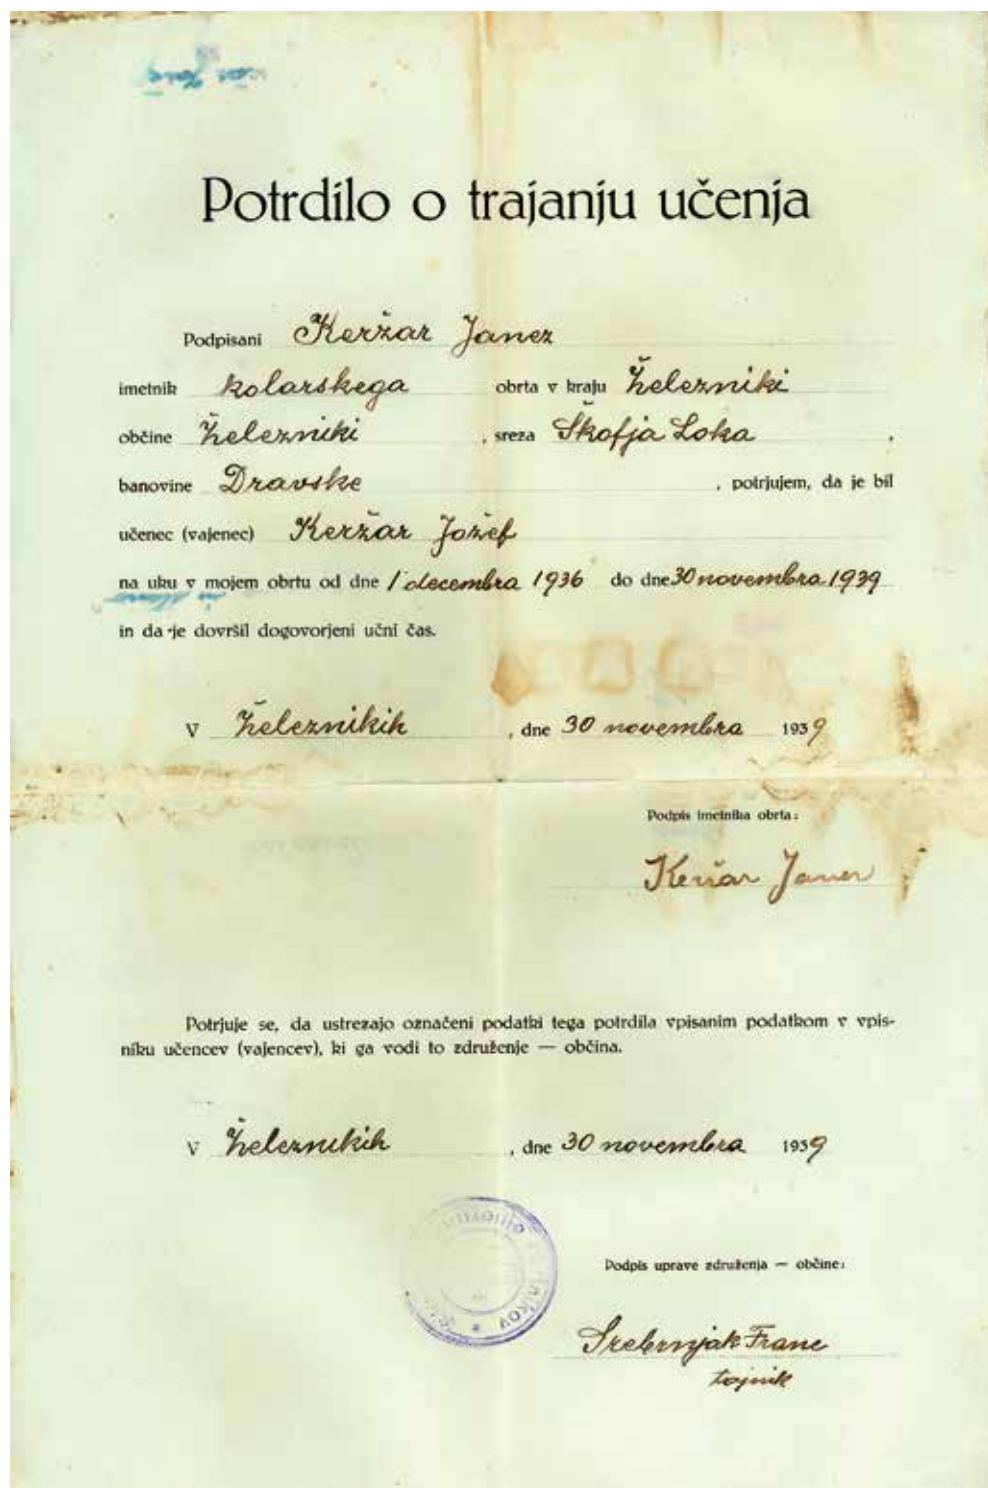 Potrdilo o trajanju učenja
Podpisani Keržar Janez
imetnik kolarskega obrta v kraju Železniki
občine Železniki , sreza Škofja Loka ,
banovine Dravske , potrjujem, da je bil
učenec (vajenec) Keržar Jožef
na uku v mojem obrtu od dne 1 decembra 1936 do dne 30 novembra 1939
in da je dovršil dogovorjeni učni čas.
V Železnikih , dne 30 novembra 1939
Podpis imetnika obrta:
Keržar Janez
Potrjuje se, da ustrezajo označeni podatki tega potrdila vpisanim podatkom v vpis-
niku učencev (vajencev), ki ga vodi to združenje — občina.
V Železnikih , dne 30 novembra 1939
Podpis uprave združenja — občine:
Srebrnjak Franc
tajnik